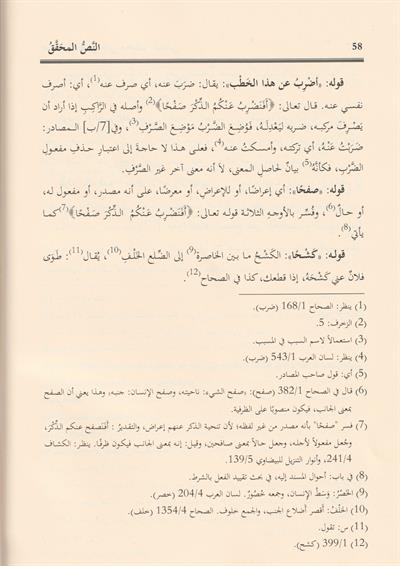 58 النَّصُّ المحقَّقُ
قوله: «أضْرِبُ عن هذا الخَطْب»: يقال: ضرَبَ عنه، أي صرف عنه(1)، أي: أصرف
نفسي عنه. قال تعالى: ﴿أَفَنَضْرِبُ عَنكُمُ الذِّكْرَ صَفْحًا﴾(2) وأصله في الرَّاكِبِ إذا أراد أن
يَصْرِفَ مركبه، ضربه لِيَعْدِلَهُ، فَوُضِعَ الضَّرْبُ مَوْضِعَ الصَّرْفِ(3)، وفي[7/ب] المصادر:
ضَرَبْتُ عَنْهُ، أي تركته، وأمسكتُ عنه(4)، فعلى هذا لا حاجة إلى اعتبار حذف مفعول
الضَّرْبِ، فكأنَّه(5) بيانٌ لحاصلِ المعنى، لا أنه معنى آخر غير الصَّرْفِ.
قوله: «صفحًا»: أي إعراضًا، أو للإعراضِ، أو معرضًا، على أنه مصدر، أو مفعول له،
أو حالٌ(6)، وفُسِّر بالأوجهِ الثلاثة قوله تعالى: ﴿أَفَنَضْرِبُ عَنكُمُ الذِّكْرَ صَفْحًا﴾(7)كما
يأتي(8).
قوله: «كَشْحًا»: الكَشْحُ ما بين الخاصرة(9) إلى الضِّلعِ الخَلْفِ(10)، يُقال(11): طَوَى
فلانٌ عني كَشْحَهُ، إذا قطعك، كذا في الصحاح(12).
(1) ينظر: الصحاح 168/1 (ضرب).
(2) الزخرف: 5.
(3) استعمالاً لاسم السبب في المسبب.
(4) ينظر: لسان العرب 543/1 (ضرب).
(5) أي: قول صاحب المصادر.
(6) قال في الصحاح 382/1 (صفح): «صفح الشيء: ناحيته، وصفح الإنسان: جنبه» وهذا يعني أن الصفح
بمعنى الجانب، فيكون منصوبًا على الظرفية.
(7) فسر "صفحًا" بأنه مصدر من غير لفظه؛ لأن تنحية الذكر عنهم إعراض، والتقديرُ : أفنَصفح عنكم الذِّكرَ،
وجُعل مفعولاً لأجله، وجعل حالاً بمعنى صافحين، وقيل: إنه بمعنى الجانب فيكون ظرفًا. ينظر: الكشاف
241/4، وأنوار التنزيل للبيضاوي 139/5.
(8) في باب: أحوال المسند إليه، في بحث تقييد الفعل بالشرط.
(9) الخَصْرُ: وَسَطُ الإنسان، وجمعه خُصُورٌ. لسان العرب 204/4 (خصر).
(10) الخَلْفُ: أقصر أضلاع الجنب، والجمع خلوف. الصحاح 1354/4 (خلف).
(11) س: تقول.
(12) 399/1 (كشح).